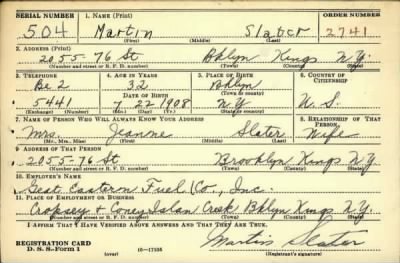 SERIAL NUMBER 1. NAME (Print) ORDER NUMBER
504 Martin Slater 2741
(First) (Middle) (Last)
2. ADDRESS (Print)
2055-76 St Bklyn Kings N.Y.
(Number and street or R. F. D. number) (Town) (County) (State)
3. TELEPHONE 4. AGE IN YEARS 5. PLACE OF BIRTH 6. COUNTRY OF CITIZENSHIP
Be 2 32 Bklyn
DATE OF BIRTH (Town or county)
5441 7 22 1908 N.Y U.S.
(Exchange) (Number) (Mo.) (Day) (Yr.) (State or country)
7. NAME OF PERSON WHO WILL ALWAYS KNOW YOUR ADDRESS 8. RELATIONSHIP OF THAT PERSON
Mrs. Jeanne Slater Wife
(Mr., Mrs., Miss) (First) (Middle) (Last)
9. ADDRESS OF THAT PERSON
2055-76 St Brooklyn Kings N.Y.
(Number and street or R. F. D. number) (Town) (County) (State)
10. EMPLOYER'S NAME
Great Eastern Fuel Co., Inc.
11. PLACE OF EMPLOYMENT OR BUSINESS
Cropsey & Coney Islan Creek Bklyn Kings N.Y.
(Number and street or R. F. D. number) (Town) (County) (State)
I AFFIRM THAT I HAVE VERIFIED ABOVE ANSWERS AND THAT THEY ARE TRUE.
REGISTRATION CARD
D. S. S. Form 1 (over) 16-17105 Martin Slater
(Registrant's signature)